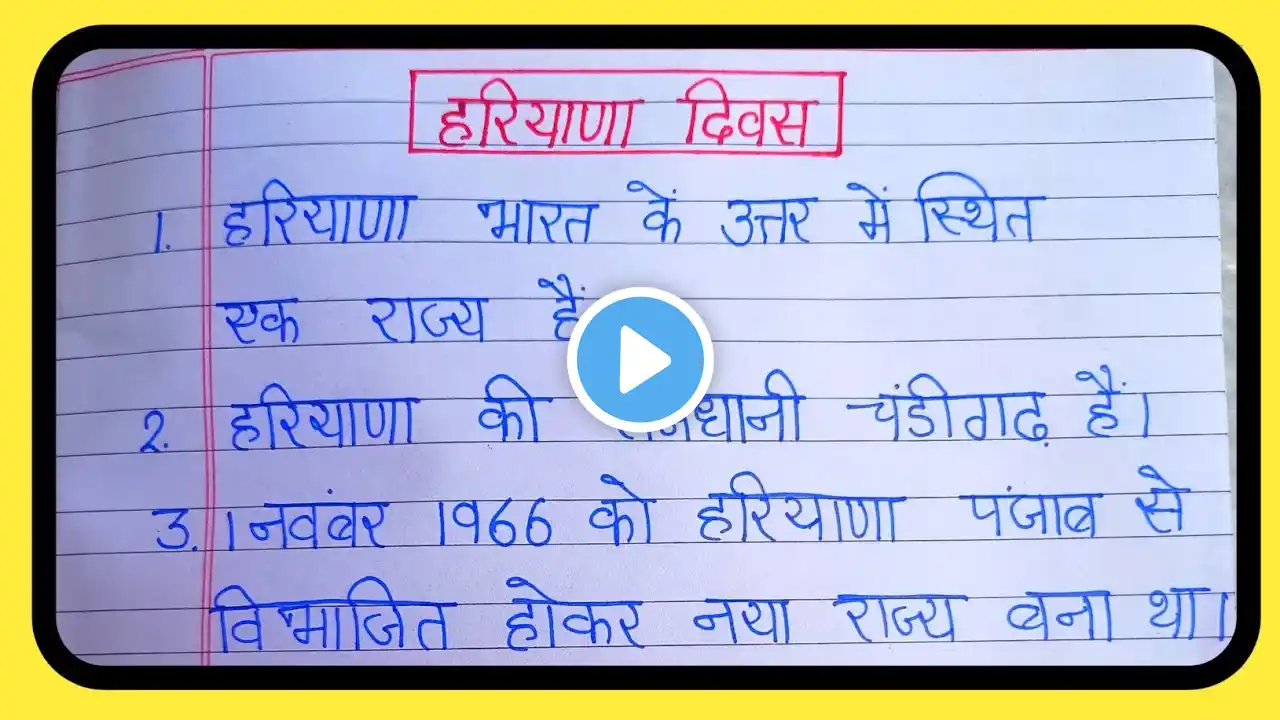 हरियाणा दिवस
1. हरियाणा भारत कें उत्तर में स्थित
एक राज्य हैं
2. हरियाणा की राजधानी चंडीगढ़ हैं।
3. 1 नवंबर 1966 को हरियाणा पंजाब से
विभाजित होकर नया राज्य बना था।